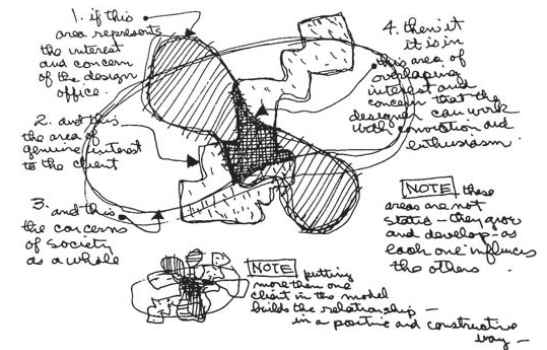 1. if this
area represents
the interest
and concern
of the design
office.
2. and this
the area of
genuine interest
to the client
3. and this
the concerns
of society
as a whole
4. then it
it is in
this area of
overlapping
interest and
concern that the
designer can work
with conviction and
enthusiasm.
NOTE these
areas are not
static - they grow
and develop - as
each one influences
the others.
NOTE putting
more than one
client in the model
builds the relationship -
in a positive and constructive
way -